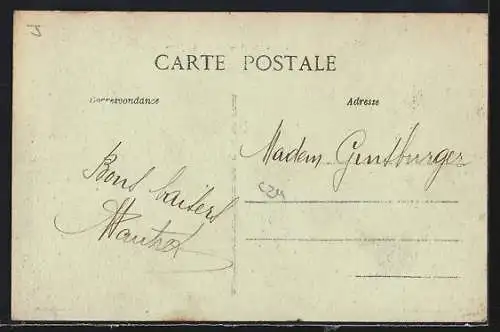 CARTE POSTALE
Correspondance
Adresse
Bons baisers
Madem. Gintburger